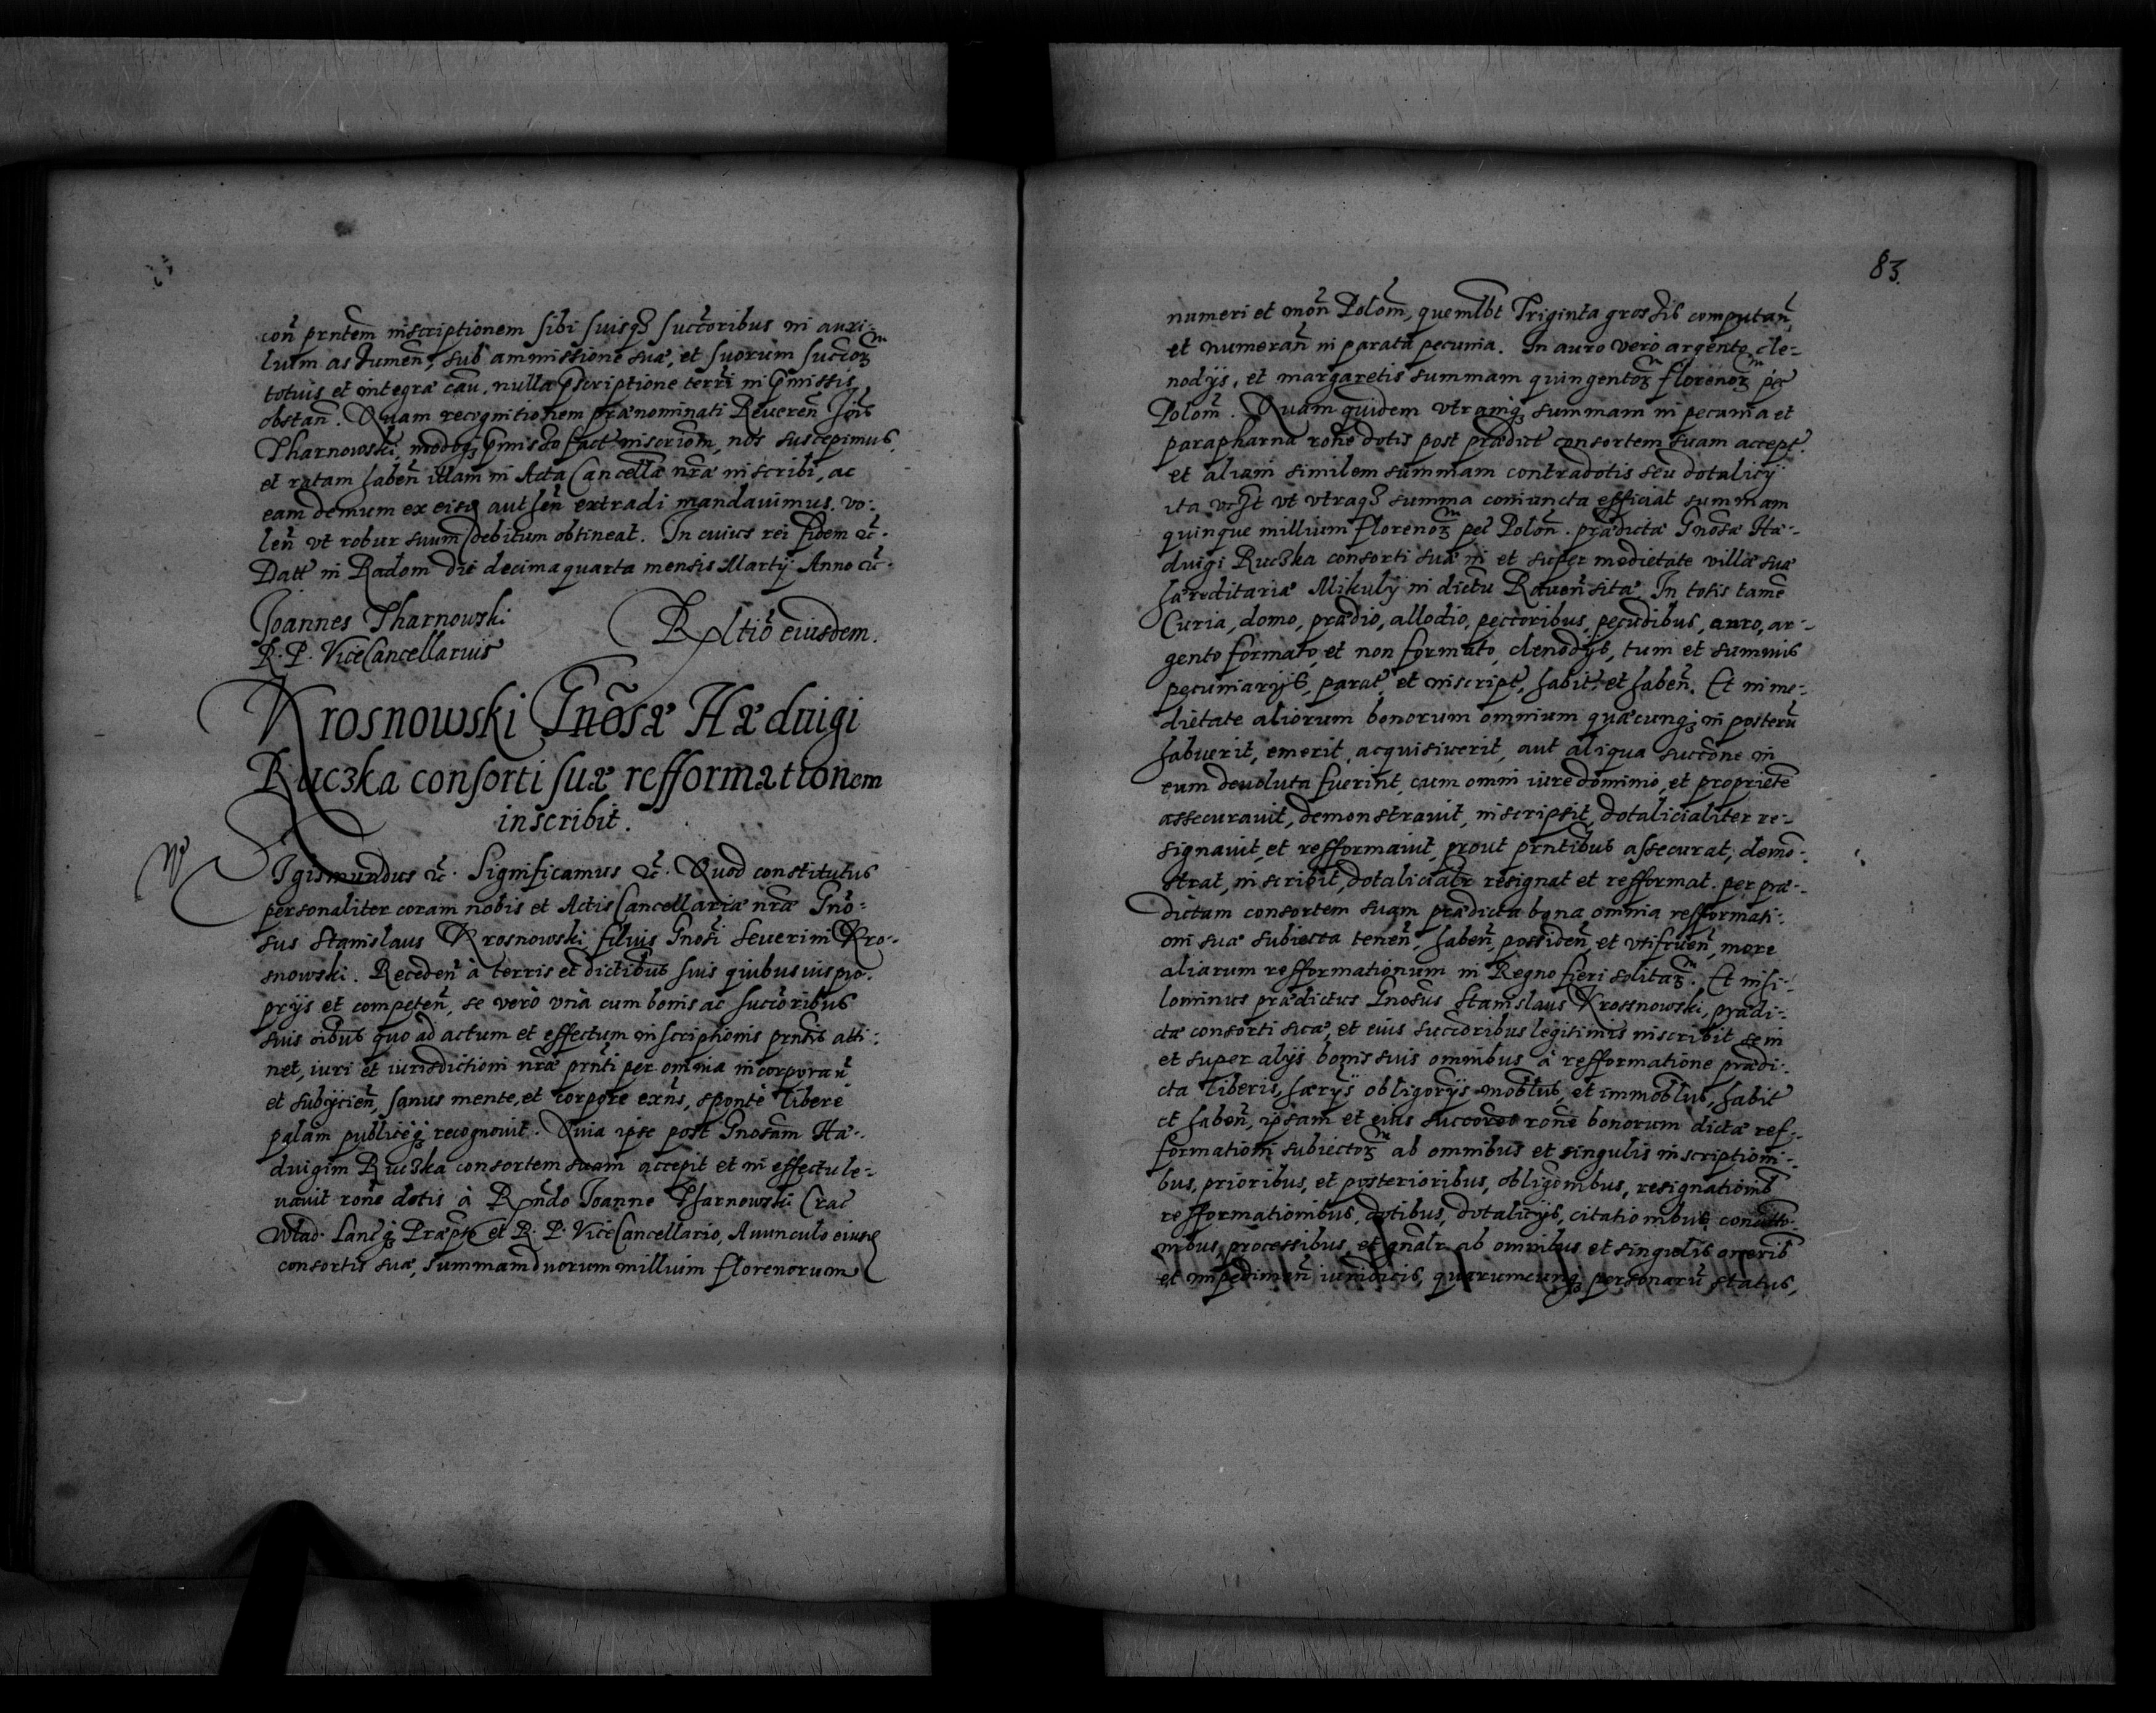 con̄ prntem inscriptionem sibi suisqz succoribus in auxi-
lium assumen̄, sub ammissione suæ, et suorum succorz
totius et integræ cau. nulla præscriptione terri in præmissis
obstan̄. Quam recognitionem prænominati Reueren̄ Jois
Tharnowski, modoqz præmisso fact inscriom, nos suscepimus,
et ratam haben̄ illam in Acta Cancellæ nræ inscribi, ac
eam demum ex eisd authen̄ extradi mandauimus. vo-
len̄ vt robur suum debitum obtineat. In cuius rei fidem etc̄.
Datt in Radom die decima quarta mensis Martij Anno etc̄.
Joannes Tharnowski
R. P. ViceCancellarius
Rltio eiusdem.
Krosnowski Gnosæ Hæduigi
Ruczka consorti suæ refformationem
inscribit.
Sigismundus etc̄. Significamus etc̄. Quod constitutus
personaliter coram nobis et Actis Cancellariæ nræ Gno-
sus Stanislaus Krosnowski, filius Gnosi Seuerini Kro-
snowski. Receden̄ à terris et dictibus suis quibusuis pro-
prijs et competen̄, se verò vnà cum bonis ac succoribus
suis oibus quo ad actum et effectum inscriptionis prntis atti-
net, iuri et iurisdictioni nræ prnti per omnia incorporan̄
et subijcien̄, sanus mente, et corpore exn̄s, sponte libere
palam publiceqz recognouit. Quia ipse post Gnosam Hæ-
duigim Ruczka consortem suam accepit et in effectu le-
uauit rone dotis à Rndo Joanne Tharnowski Crac
Wlad. Lancqz Præpto et R. P. ViceCancellario, Auunculo eiusd
consortis suæ, summam duorum millium florenorum
83.
numeri et mon̄ Polon̄, quemlbt Triginta grossis computan̄,
et numeran̄ in parata pecunia. In auro verò argento, cle-
nodijs, et margaretis summam quingentorz florenorz pec
Polon̄. Quam quidem vtramqz summam in pecunia et
parapharna rone dotis post prædict consortem suam accept.
et aliam similem summam contradotis seu dotalicij
ita vt vtraqz summa coniuncta efficiat summam
quinque millium florenorz pec Polon̄. prædictæ Gnosæ Hæ-
duigi Ruczka consorti suæ in et super medietate villæ suæ
hæreditariæ Mikuly in dictu Rauen̄ sitæ. In totis tame
Curia, domo, prædio, allodio, pectoribus, pecudibus, auro, ar-
gento formato, et non formato, clenodijs, tum et summis
pecuniarijs, parat, et inscript, habit, et haben̄. Et in me-
dietate aliorum bonorum omnium quæcunqz in posterū
habuerit, emerit, acquisiuerit, aut aliqua succone in
eum deuoluta fuerint, cum omni iure dominio, et propriete
assecurauit, demonstrauit, inscripsit, dotalicialiter re-
signauit, et refformauit, prout prntibus assecurat, demo-
strat, inscribit, dotalicialr resignat et refformat. per præ-
dictam consortem suam prædicta bona omnia refformati-
oni suæ subiecta tenen̄, haben̄, possiden̄, et vtifruen̄, more
aliarum refformationum in Regno fieri solitarz. Et nihi-
lominus prædictus Gnosus Stanislaus Krossnowski, prædi-
ctæ consorti suæ, et eius succoribus legitimis inscribit se in
et super alijs bonis suis omnibus à refformatione prædi-
cta liberis, hærijs obligorijs moblibus, et immoblibus, habit
et haben̄, ipsam et eius succores rone bonorum dictæ ref-
formationi subiectorz ab omnibus et singulis inscriptioni-
bus, prioribus, et posterioribus, obligonibus, resignationib
refformationibus, dotibus, dotalicijs, citationibus
nibus, processibus, et gnalr ab omnibus et singulis onerib
et impedimen̄ iuridicis, quarumcunqz personarū status,